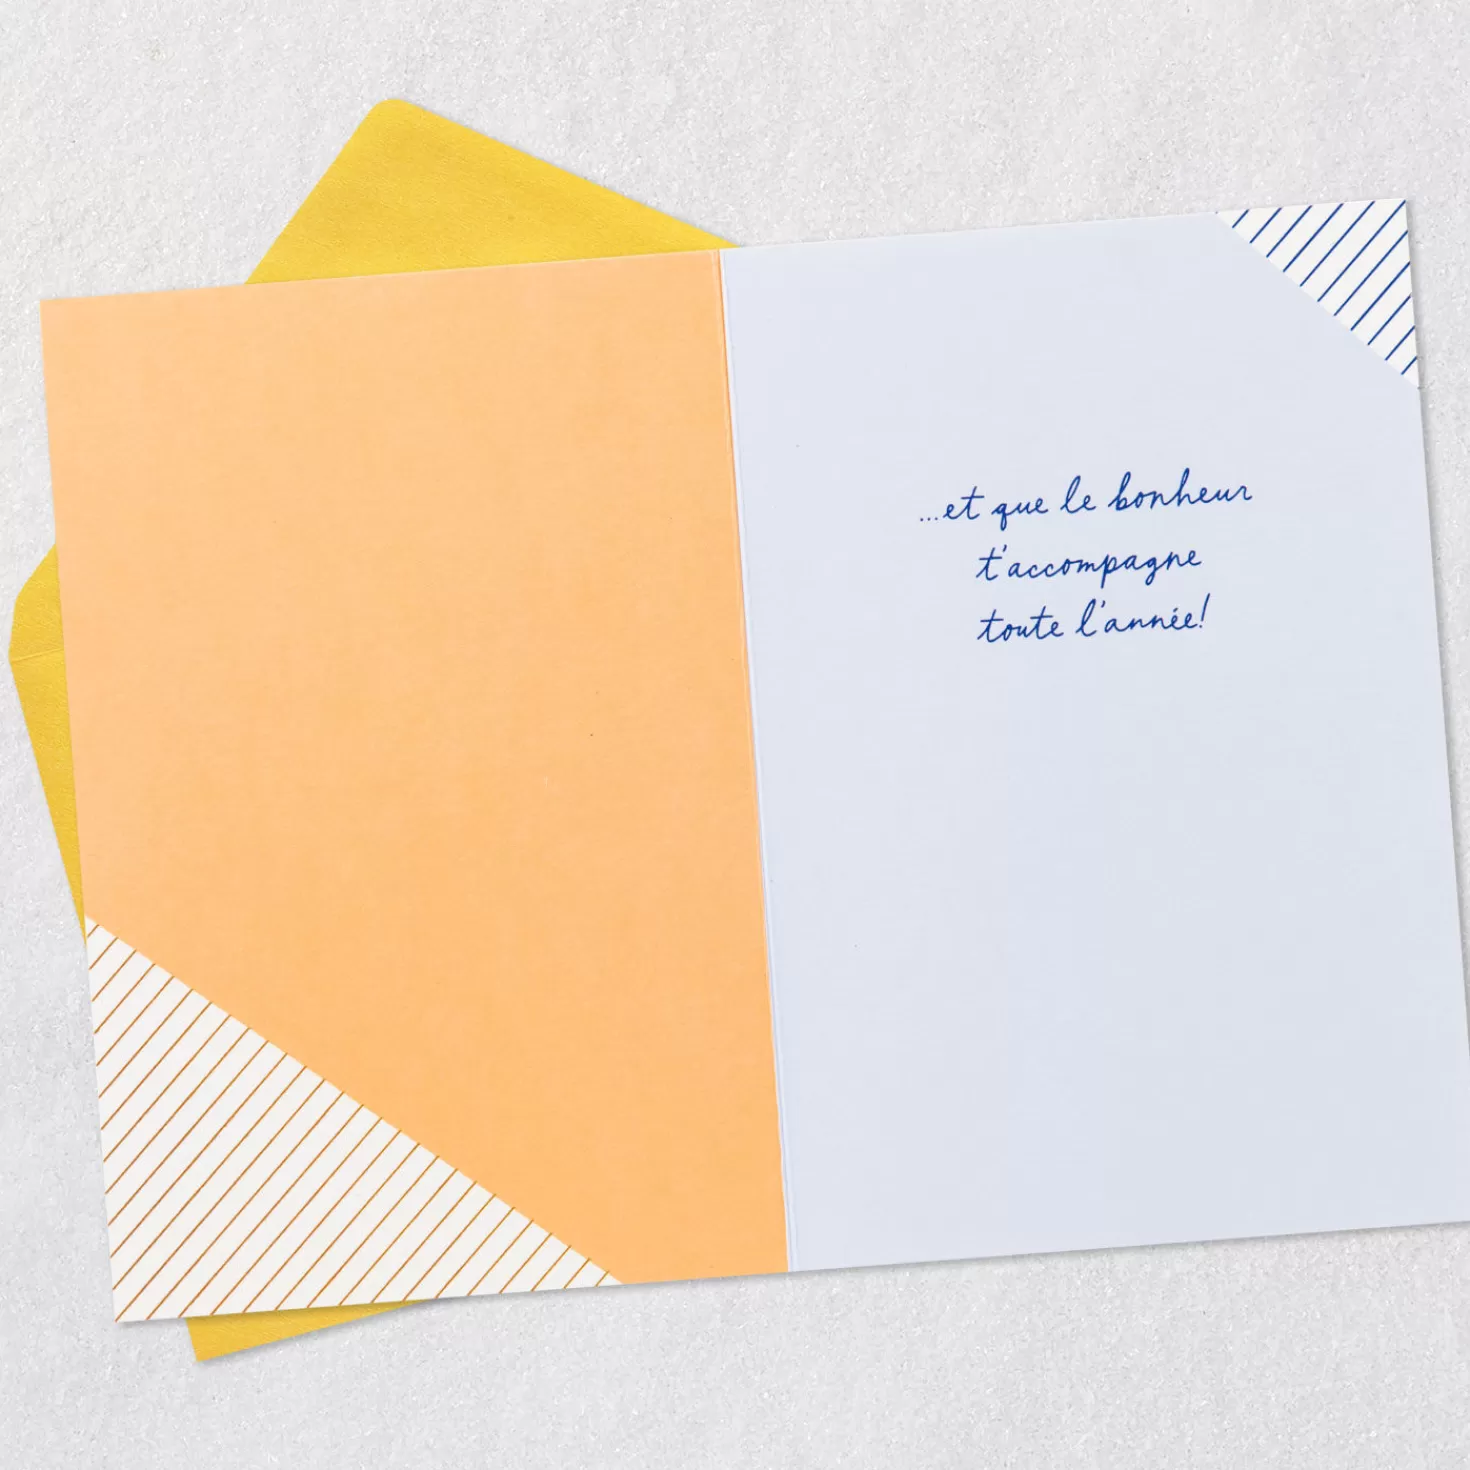 ...et que le bonheur
t'accompagne
toute l'année!